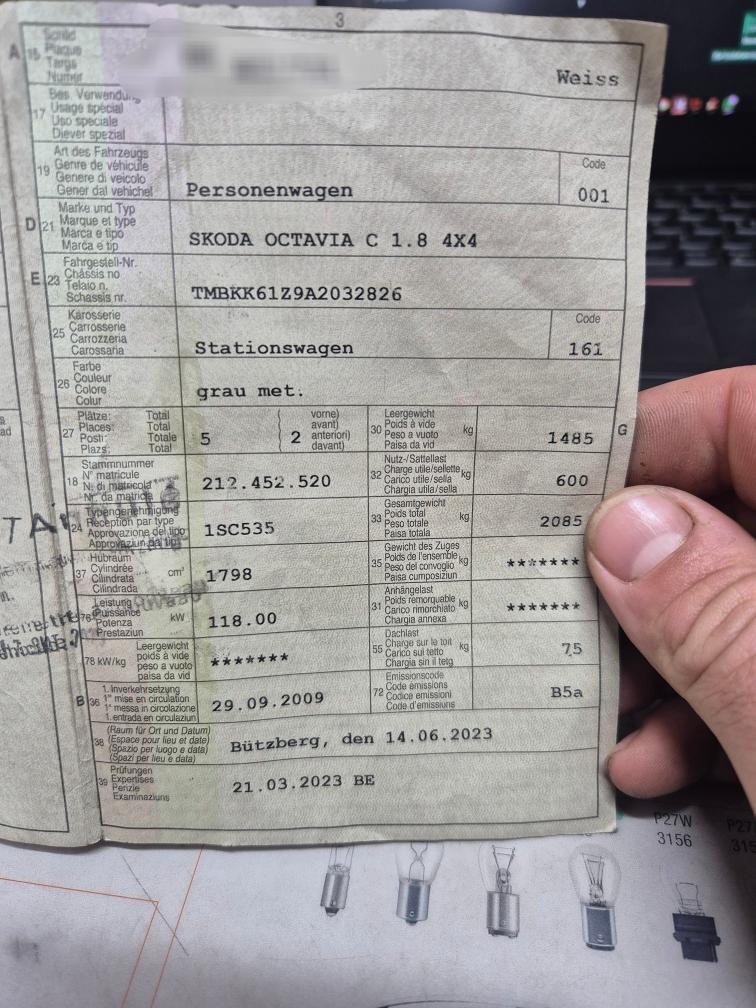 3
A 15 Schild
Plaque
Targa
Numer
Weiss
17 Bes. Verwendung
Usage spécial
Uso speciale
Diever spezial
19 Art des Fahrzeugs
Genre de véhicule
Genere di veicolo
Gener dal vehichel
Personenwagen
Code
001
D 21 Marke und Typ
Marque et type
Marca e tipo
Marca e tip
SKODA OCTAVIA C 1.8 4X4
E 23 Fahrgestell-Nr.
Châssis no
Telaio n.
Schassis nr.
TMBKK61Z9A2032826
25 Karosserie
Carrosserie
Carrozzeria
Carossaria
Stationswagen
Code
161
26 Farbe
Couleur
Colore
Colur
grau met.
27 Plätze: Total
Places: Total
Posti: Totale
Plazs: Total
5
2
vorne)
avant)
anteriori)
davant)
30 Leergewicht
Poids à vide
Peso a vuoto
Paisa da vid
kg
1485
G
18 Stammnummer
N° matricule
N. di matricola
Nr. da matricla
212.452.520
32 Nutz-/Sattellast
Charge utile/sellette
Carico utile/sella
Chargia utila/sella
kg
600
24 Typengenehmigung
Réception par type
Approvazione del tipo
Approvaziun da tip
1SC535
33 Gesamtgewicht
Poids total
Peso totale
Paisa totala
kg
2085
37 Hubraum
Cylindrée
Cilindrata
Cilindrada
cm³
1798
35 Gewicht des Zuges
Poids de l'ensemble
Peso del convoglio
Paisa cumposiziun
kg
*******
76 Leistung
Puissance
Potenza
Prestaziun
kW
118.00
31 Anhängelast
Poids remorquable
Carico rimorchiato
Chargia annexa
kg
*******
78 kW/kg
Leergewicht
poids à vide
peso a vuoto
paisa da vid
*******
55 Dachlast
Charge sur le toit
Carico sul tetto
Chargia sin il tetg
kg
75
B 36 1. Inverkehrsetzung
1re mise en circulation
1a messa in circolazione
1. entrada en circulaziun
29.09.2009
72 Emissionscode
Code émissions
Codice emissioni
Code d'emissiuns
B5a
38 (Raum für Ort und Datum)
(Espace pour lieu et date)
(Spazio per luogo e data)
(Spazi per lieu e data)
Bützberg, den 14.06.2023
39 Prüfungen
Expertises
Perizie
Examinaziuns
21.03.2023 BE
P27W
3156